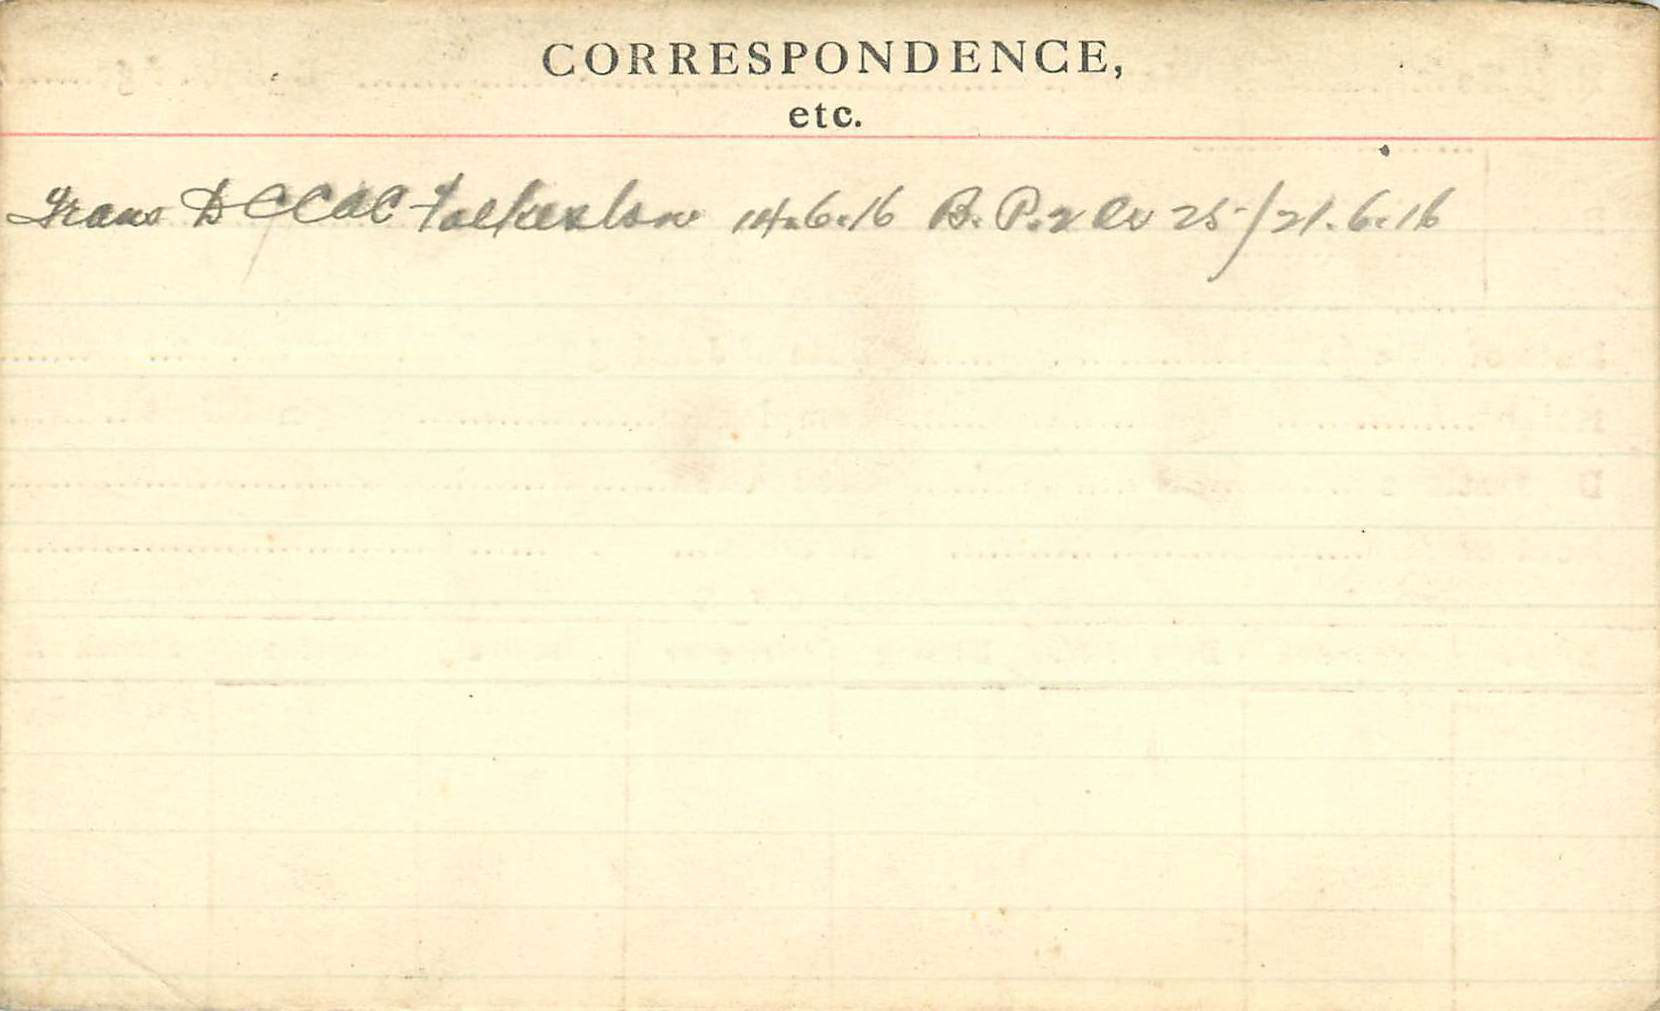 CORRESPONDENCE,
etc.
Trans to CCAC Folkestone 14.6.16 B. P. 2 25/21.6.16